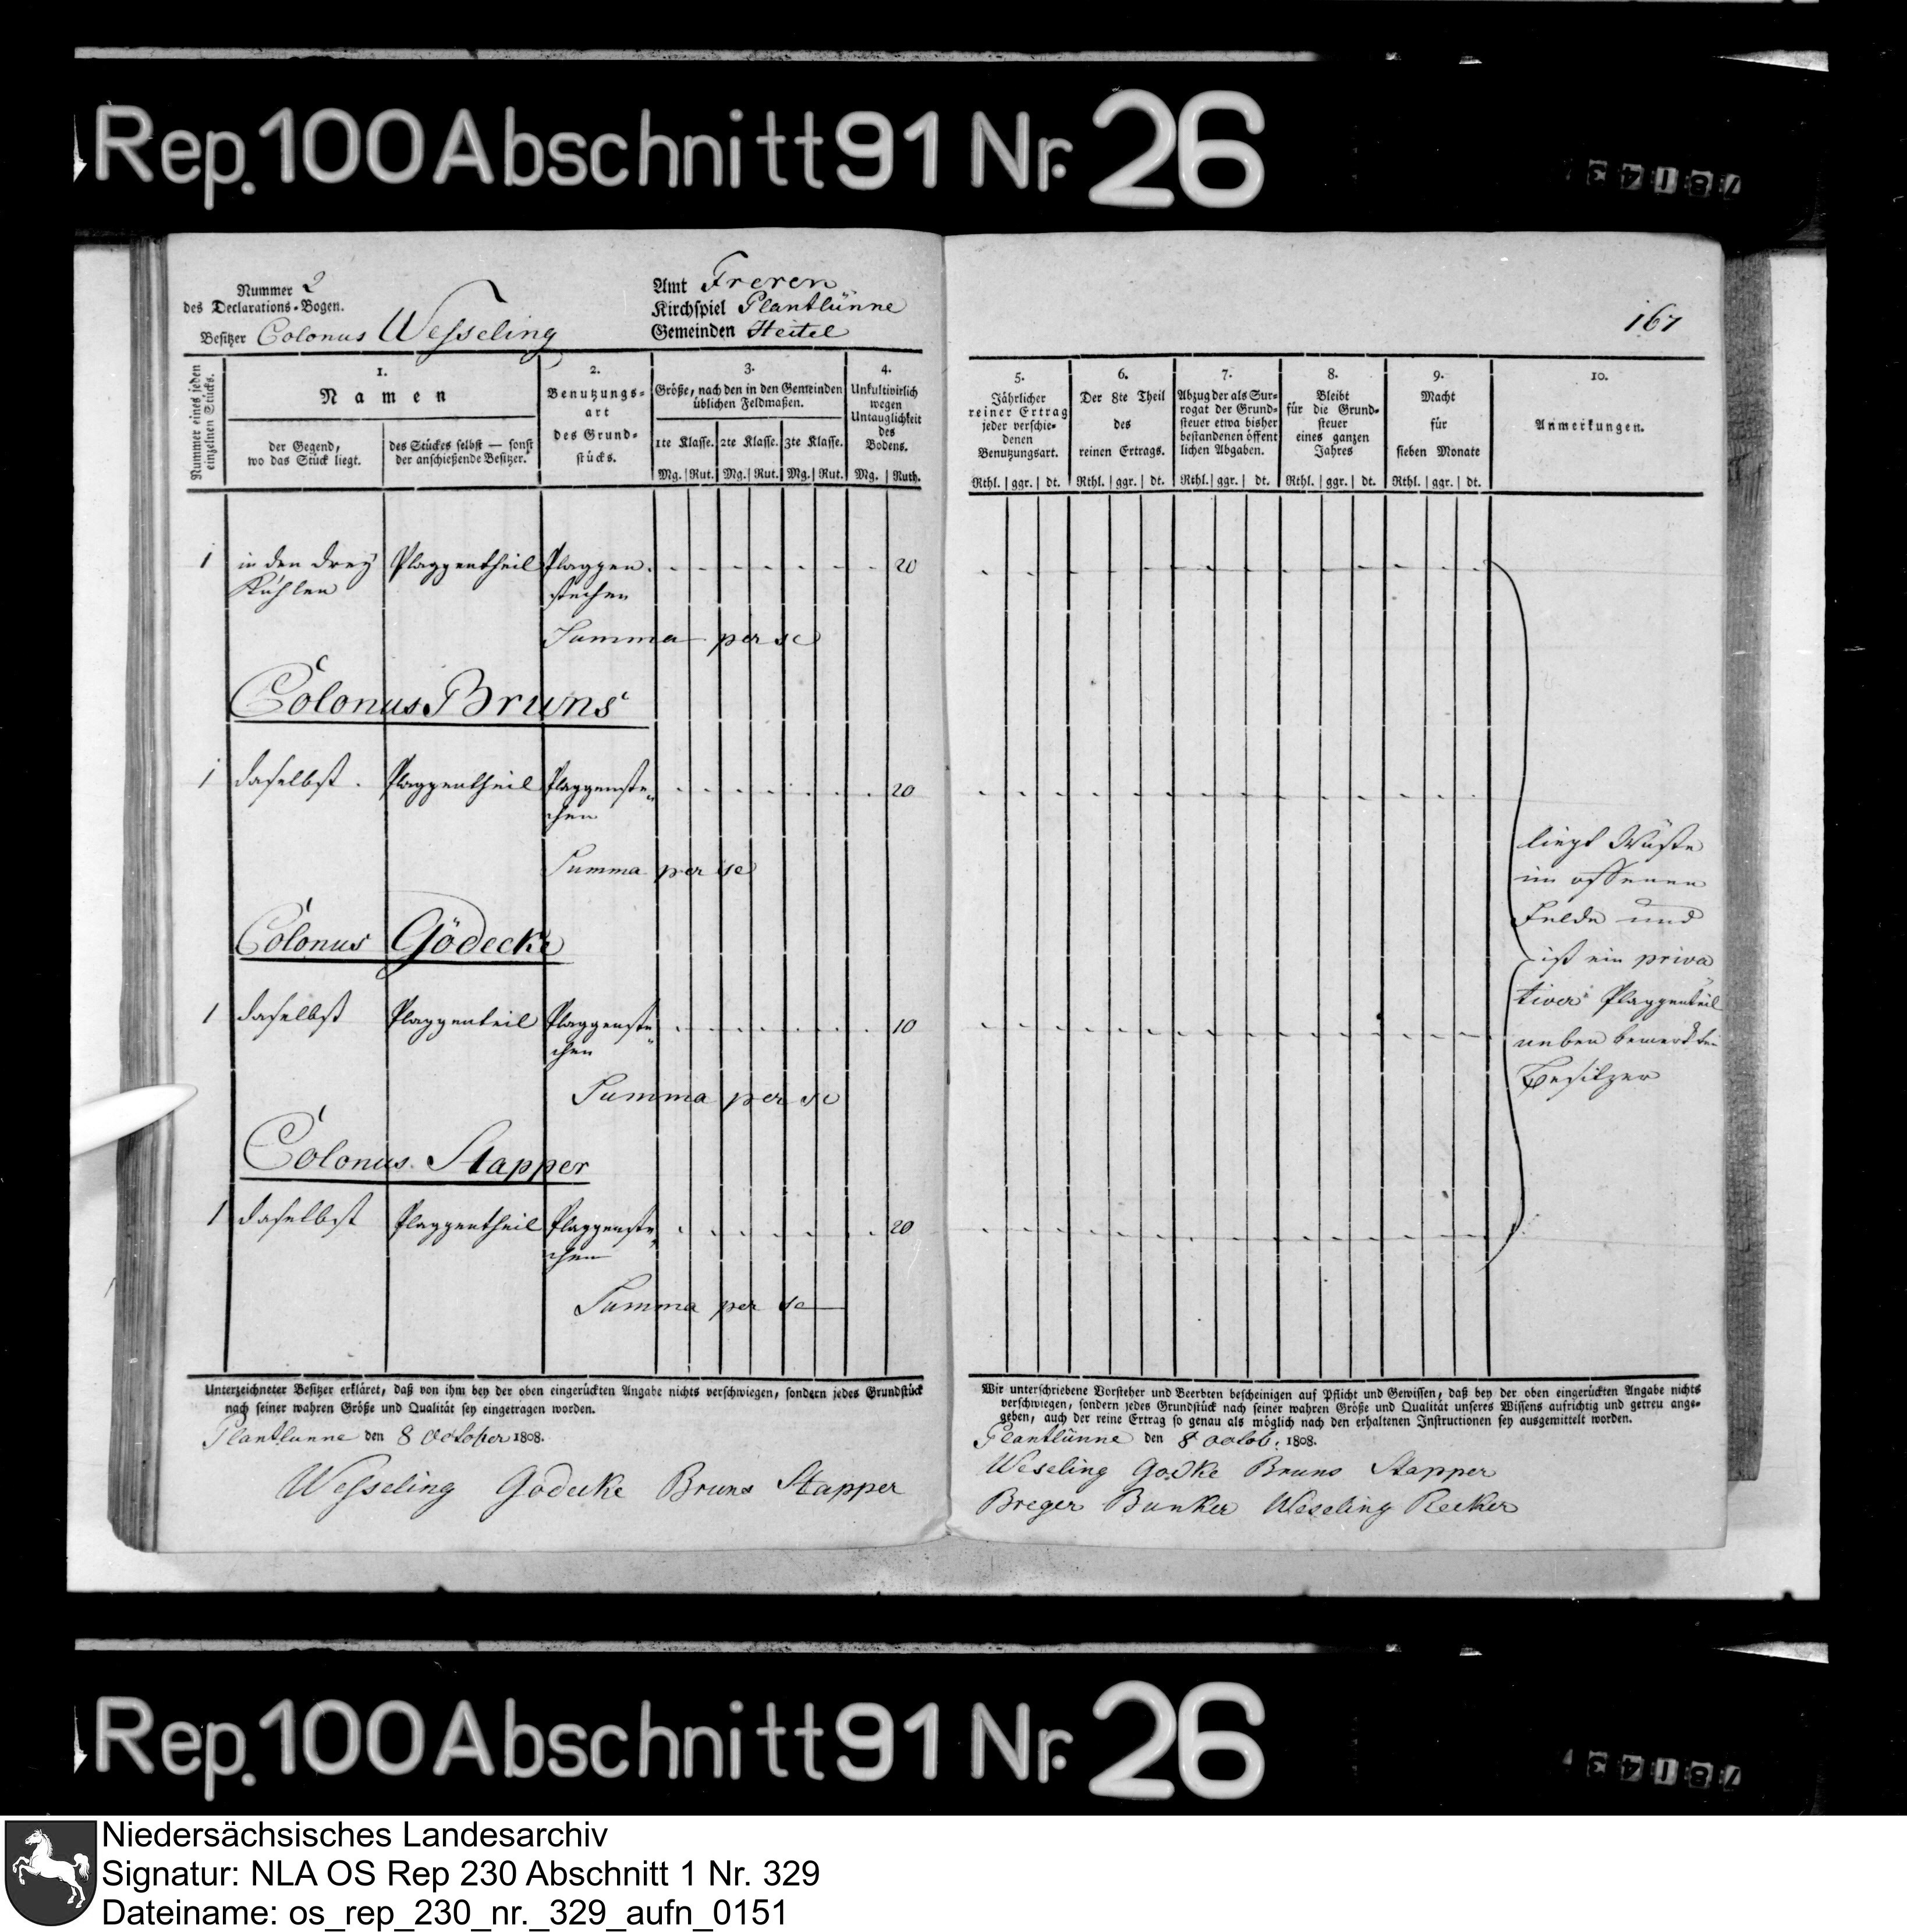 Rep. 100 Abschnitt 91 Nr. 26
Nummer 2
des Declarations-Bogen.
Besitzer Colonus Wesseling
Amt Freren
Kirchspiel Plantlünne
Gemeinden Heitel
167
Nummer eines jeden
einzelnen Stücks.
1.
Namen
der Gegend,
wo das Stück liegt.
des Stückes selbst — sonst
der anschießende Besitzer.
2.
Benutzungs-
art
des Grund-
stücks.
3.
Größe, nach den in den Gemeinden
üblichen Feldmaßen.
1te Klasse. 2te Klasse. 3te Klasse.
Mg. Rut. Mg. Rut. Mg. Rut.
4.
Unkultivirlich
wegen
Untauglichkeit
des
Bodens.
Mg. Ruth.
5.
Jährlicher
reiner Ertrag
jeder verschie-
denen
Benutzungsart.
Rthl. ggr. dt.
6.
Der 8te Theil
des
reinen Ertrags.
Rthl. ggr. dt.
7.
Abzug der als Sur-
rogat der Grund-
steuer etwa bisher
bestandenen öffent
lichen Abgaben.
Rthl. ggr. dt.
8.
Bleibt
für die Grund-
steuer
eines ganzen
Jahres
Rthl. ggr. dt.
9.
Macht
für
sieben Monate
Rthl. ggr. dt.
10.
Anmerkungen.
1 in den drey Plaggentheil Plaggen 20
Kuhlen stechen
Summa per se
Colonus Bruns
1 daselbst. Plaggentheil Plaggenste- 20
chen
Summa per se
Colonus Gödecke
1 daselbst Plaggenteil Plaggenste- 10
chen
Summa per se
Colonus Stapper
1 daselbst Plaggentheil Plaggenste- 20
chen
Summa per se
liegt Wüste
im offenen
Felde und
ist ein priva
tiver Plaggenteil
neben bemerkten
Besitzer
Unterzeichneter Besitzer erkläret, daß von ihm bey der oben eingerückten Angabe nichts verschwiegen, sondern jedes Grundstück
nach seiner wahren Größe und Qualität sey eingetragen worden.
Plantlünne den 8 October 1808.
Wesseling Godecke Bruns Stapper
Wir unterschriebene Vorsteher und Beerbten bescheinigen auf Pflicht und Gewissen, daß bey der oben eingerückten Angabe nichts
verschwiegen, sondern jedes Grundstück nach seiner wahren Größe und Qualität unseres Wissens aufrichtig und getreu ange-
geben, auch der reine Ertrag so genau als möglich nach den erhaltenen Instructionen sey ausgemittelt worden.
Plantlünne den 8 Octob. 1808.
Weseling Godke Bruns Stapper
Breger Bunker Weseling Recker
Rep. 100 Abschnitt 91 Nr. 26
Niedersächsisches Landesarchiv
Signatur: NLA OS Rep 230 Abschnitt 1 Nr. 329
Dateiname: os_rep_230_nr._329_aufn_0151